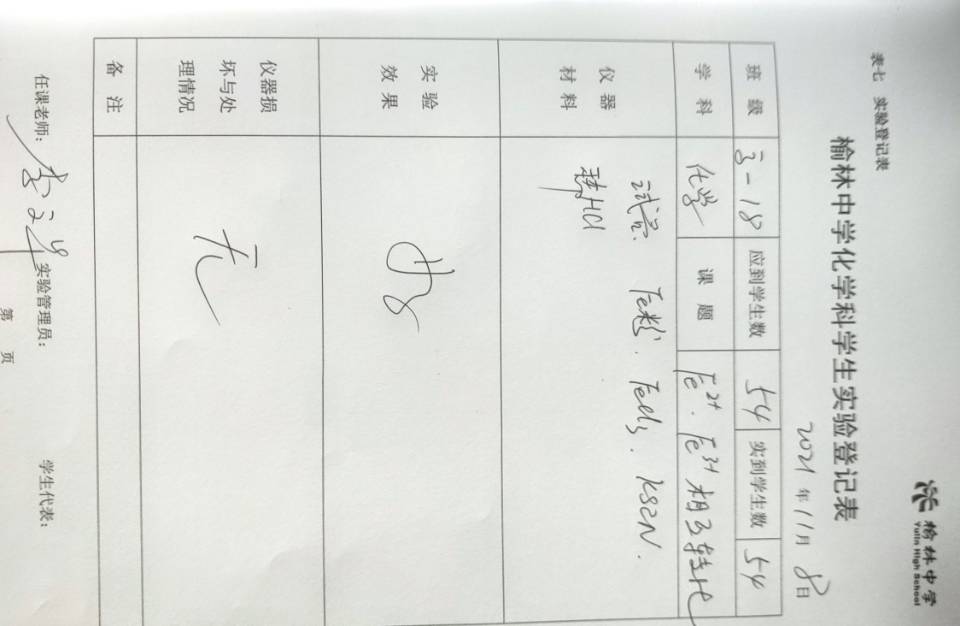 榆林中学
Yulin High School
表七 实验登记表
榆林中学化学科学生实验登记表
2021年11月8日
班级 高一18 应到学生数 54 实到学生数 54
学科 化学 课题 Fe²⁺、Fe³⁺相互转化
仪器材料 试管、Fe粉、FeCl₃、KSCN、
HCl
实验效果 好
仪器损坏与处理情况 无
备注
任课老师: 实验管理员: 学生代表:
第 页